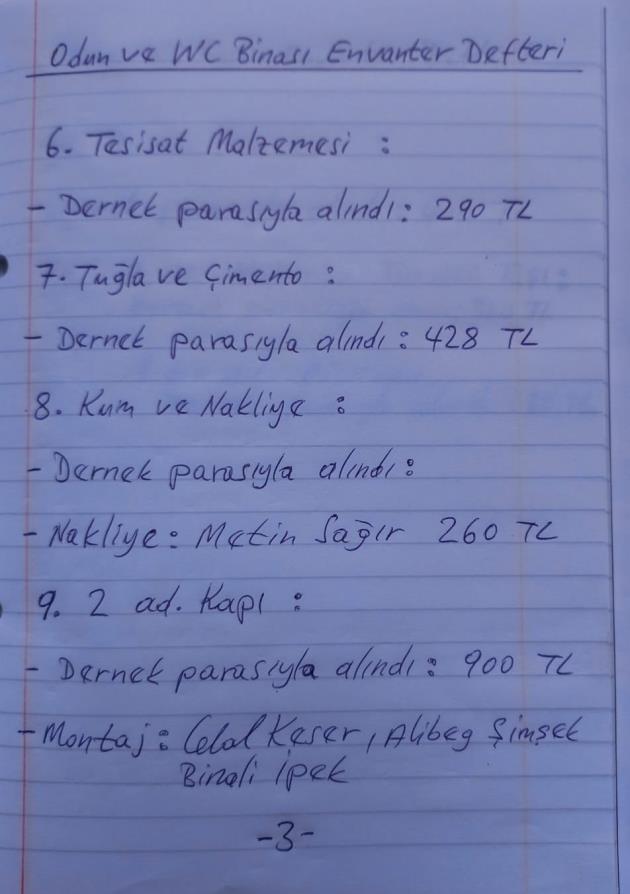 Odun ve WC Binası Envanter Defteri
6. Tesisat Malzemesi :
- Dernek parasıyla alındı: 290 TL
7. Tuğla ve Çimento :
- Dernek parasıyla alındı: 428 TL
8. Kum ve Nakliye :
- Dernek parasıyla alındı:
- Nakliye: Metin Sağır 260 TL
9. 2 ad. Kapı :
- Dernek parasıyla alındı: 900 TL
- Montaj: Celal Keser, Alibeg Şimşek
Binali İpek
-3-